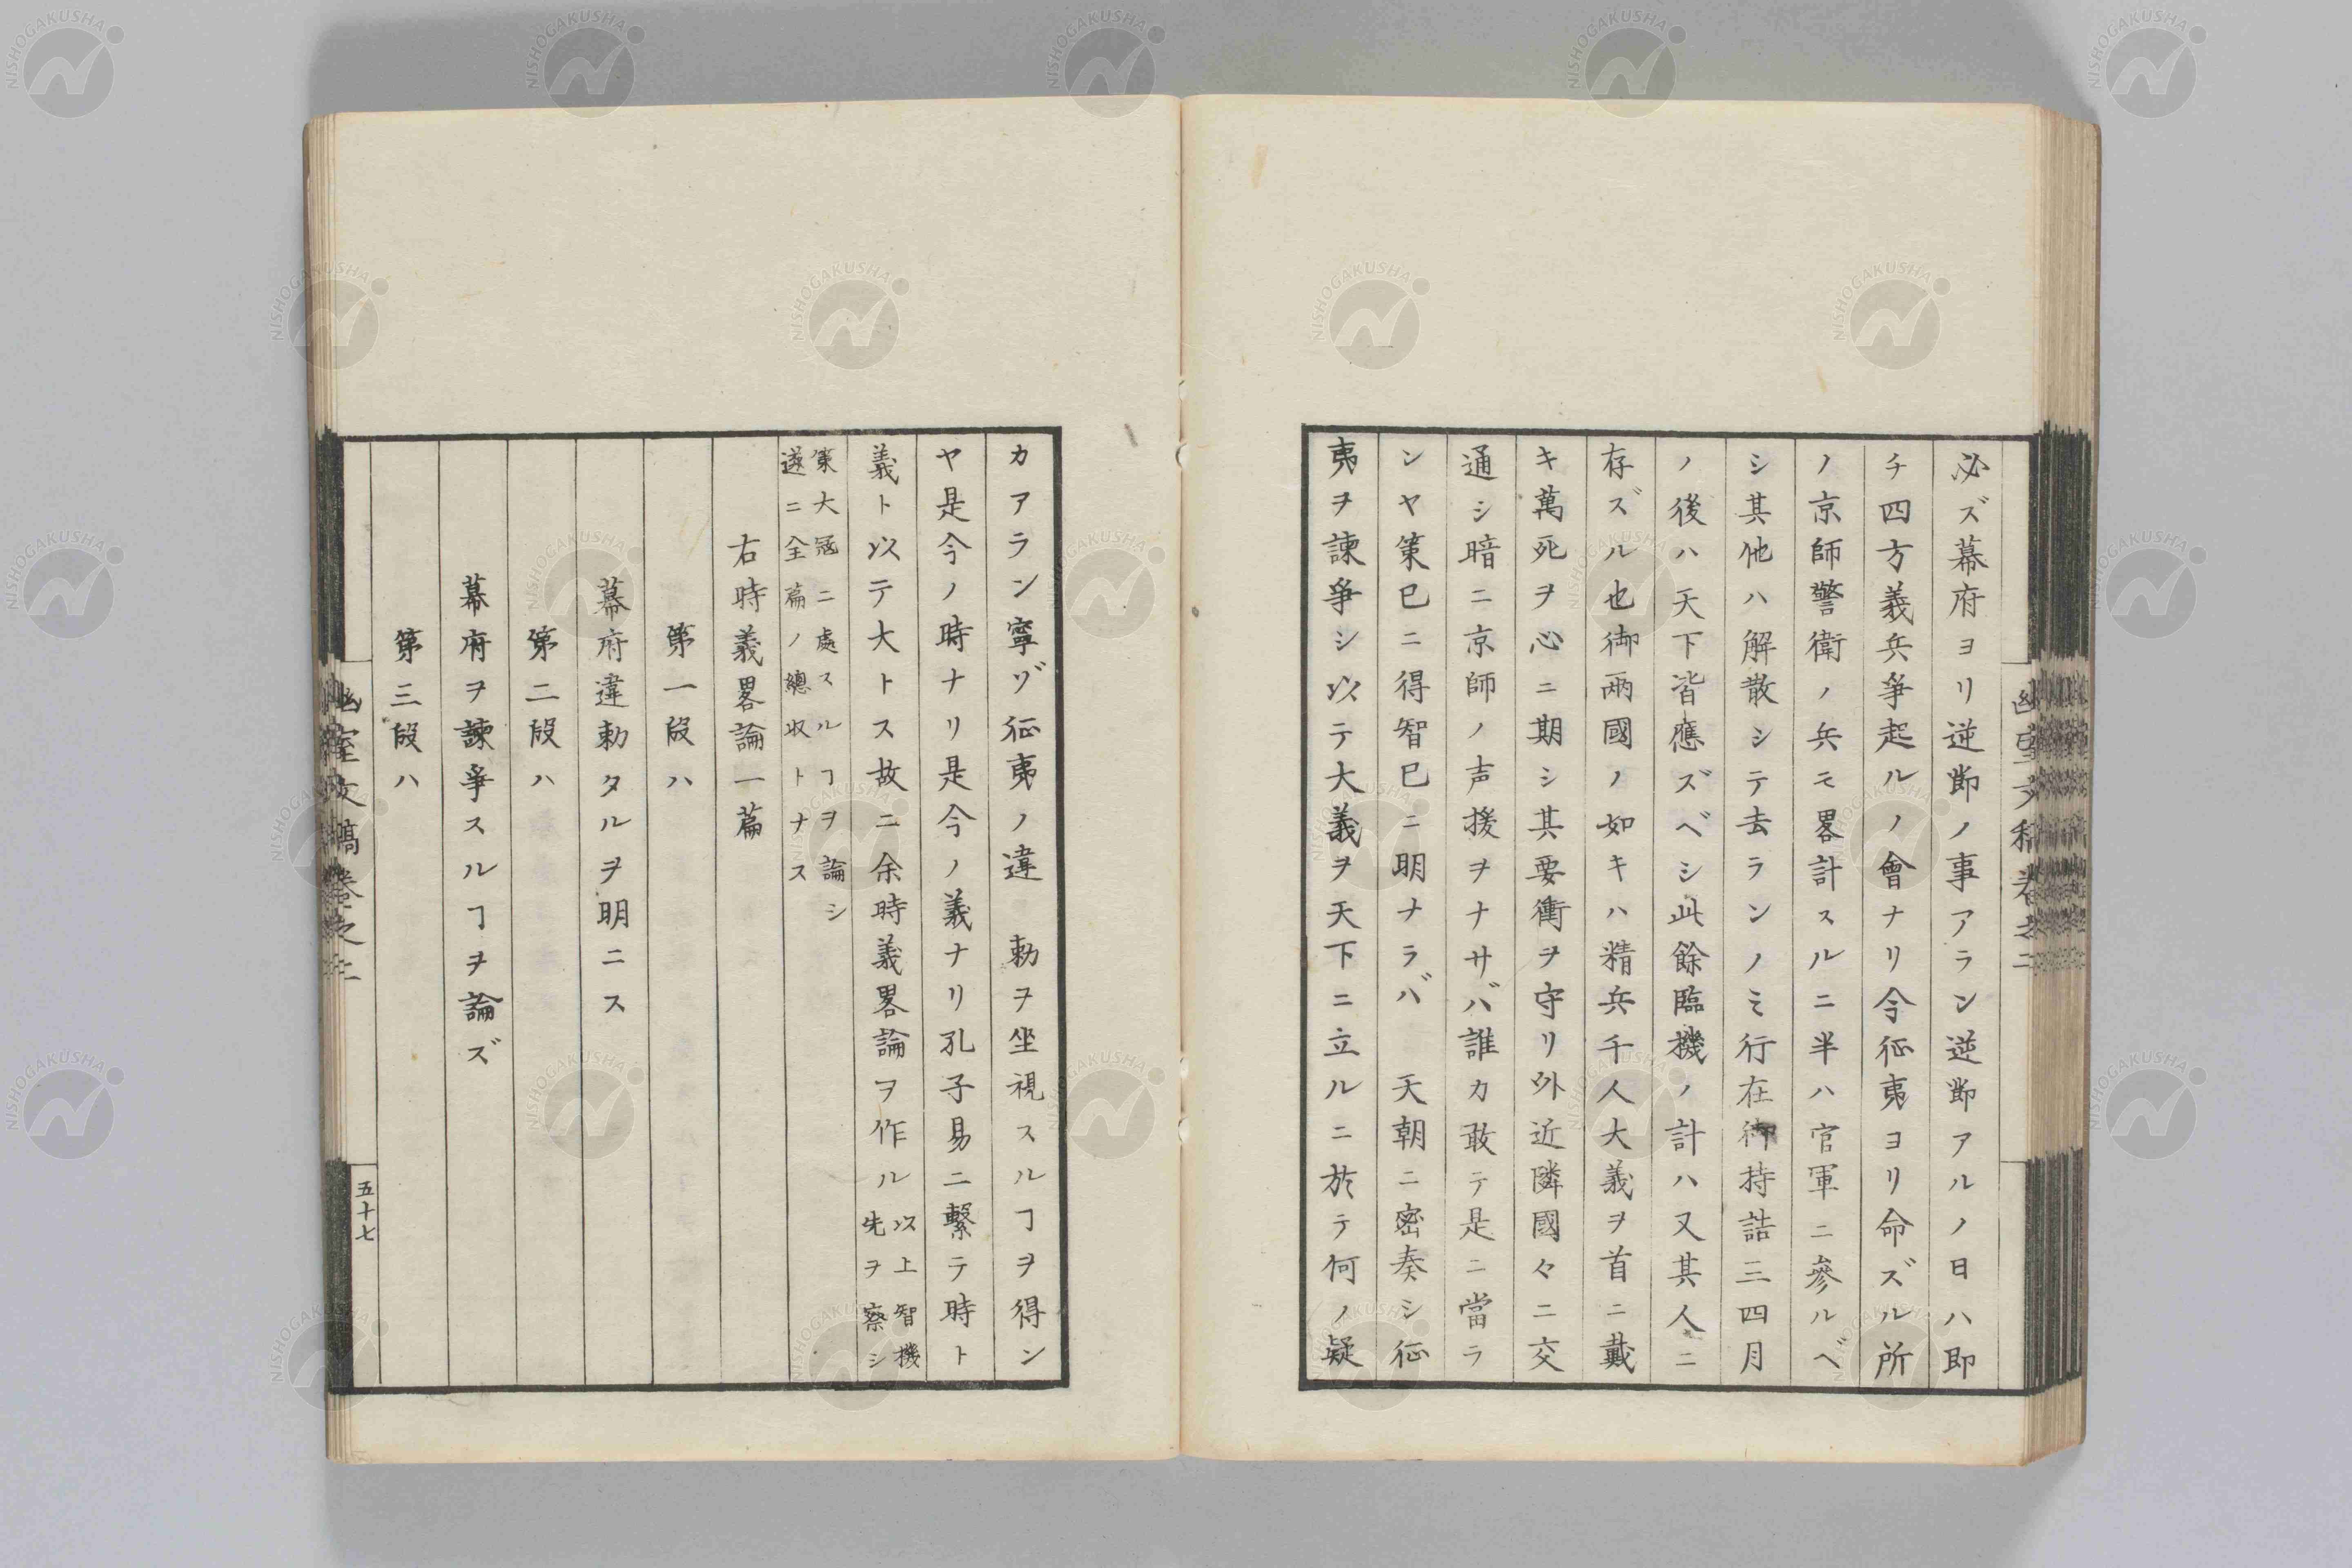 必ズ幕府ヨリ逆節ノ事アラン逆節アルノ日ハ即
チ四方義兵爭起ルノ會ナリ今征夷ヨリ命ズル所
ノ京師警衛ノ兵モ畧計スルニ半ハ官軍ニ參ルベ
シ其他ハ解散シテ去ランノミ行在御持詰三四月
ノ後ハ天下皆應ズベシ此餘臨機ノ計ハ又其人ニ
存ズル也御兩國ノ如キハ精兵千人大義ヲ首ニ戴
キ萬死ヲ心ニ期シ其要衝ヲ守リ外近隣國々ニ交
通シ暗ニ京師ノ声援ヲナサバ誰カ敢テ是ニ當ラ
ンヤ策已ニ得智已ニ明ナラバ 天朝ニ密奏シ征
夷ヲ諫爭シ以テ大義ヲ天下ニ立ルニ於テ何ノ疑
カアラン寧ゾ征夷ノ違 勅ヲ坐視スルヿヲ得ン
ヤ是今ノ時ナリ是今ノ義ナリ孔子易ニ繋テ時ト
義ト以テ大トス故ニ余時義畧論ヲ作ル以上智機
先ヲ察シ
策大冦ニ處スルヿヲ論シ
遂ニ全篇ノ總収トナス
右時義畧論一篇
第一段ハ
幕府違勅タルヲ明ニス
第二段ハ
幕府ヲ諫爭スルヿヲ論ズ
第三段ハ
幽室文稿卷之二
五十七
NISHOGAKUSHA